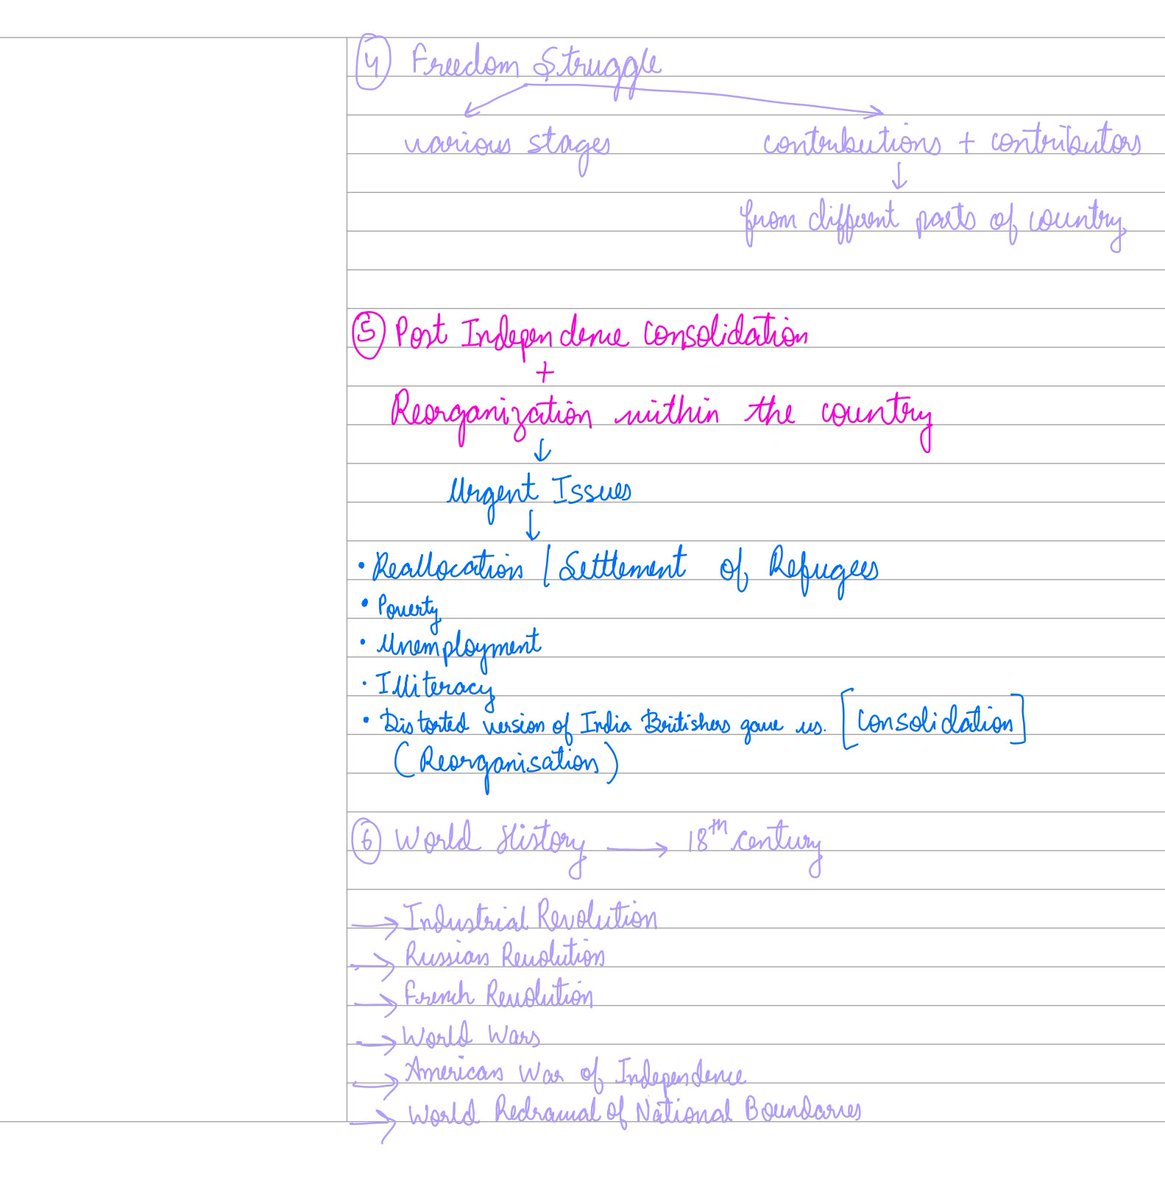 ④ Freedom Struggle
various stages contributions + contributors
↓
from different parts of country
⑤ Post Independence Consolidation
+
Reorganization within the country
↓
Urgent Issues
↓
• Reallocation / Settlement of Refugees
• Poverty
• Unemployment
• Illiteracy
• Distorted version of India Britishers gave us. [Consolidation]
(Reorganisation)
⑥ World History → 18th century
→ Industrial Revolution
→ Russian Revolution
→ French Revolution
→ World Wars
→ American War of Independence
→ World Redrawal of National Boundaries